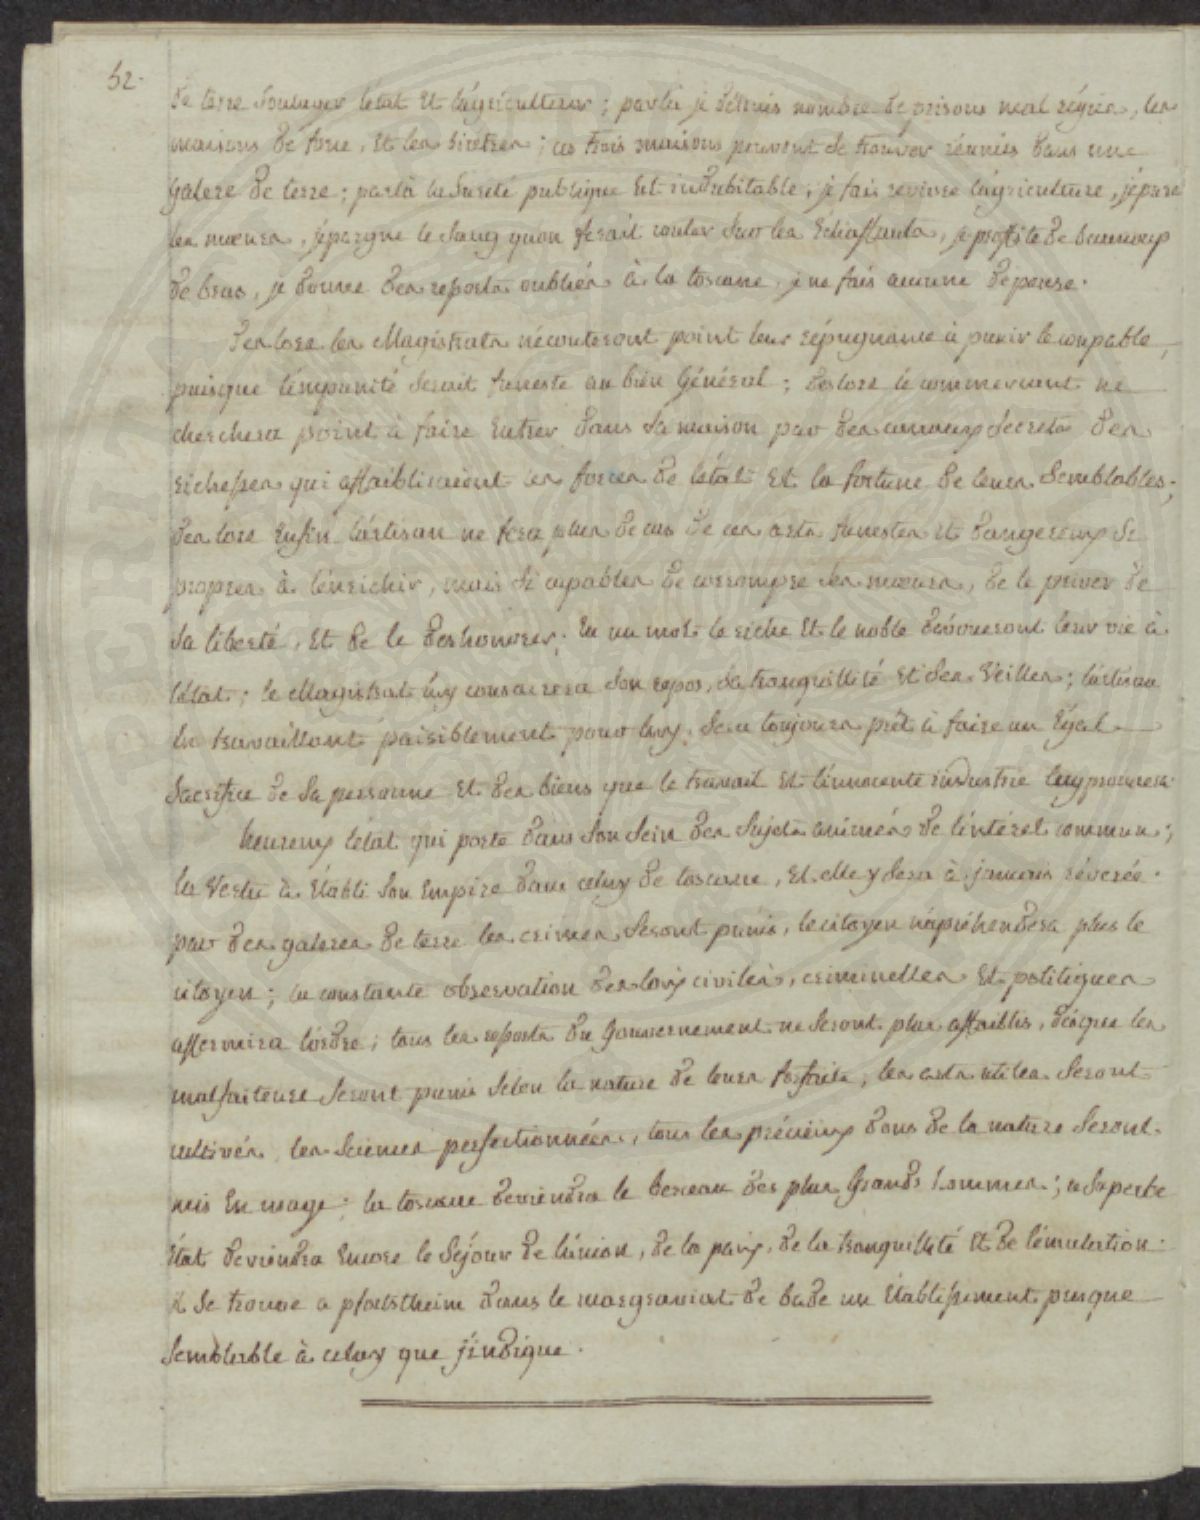 52.
de terre soulager l'état et l'agriculteur; par là je détruis nombre de prisons mal régies, les
maisons de force, et les bicêtres; ces trois maisons peuvent se trouver réunies dans une
galere de terre; par là la sureté publique est indubitable, je fais revivre l'agriculture, j'épure
les mœurs, j'épargne le sang qu'on ferait couler sur les échaffauts, je proffite de beaucoup
de bras, je donne des ressorts oubliés à la toscane, je ne fais aucune dépense.
Des lors les Magistrats n'écouteront point leur répugnance à punir le coupable,
puisque l'impunité serait funeste au bien Général; des lors le commerçant ne
cherchera point à faire entrer dans sa maison par des canaux secrets des
richesses qui affaibliraient les forces de l'état et la fortune de leurs semblables;
des lors enfin l'artisan ne fera plus de cas de ces arts funestes et dangereux si
propres à l'enrichir, mais si capables de corrompre ses mœurs, de le priver de
sa liberté, et de le deshonorer; En un mot le riche et le noble dévoueront leur vie à
l'état; le Magistrat luy consacrera son repos, sa tranquillité et ses veilles; l'artisan
en travaillant paisiblement pour luy, sera toujours prêt à faire un Egal
sacrifice de sa personne et des biens que le travail et l'innocente industrie luy procurera.
heureux l'état qui porte dans son sein des sujets animés de l'intéret commun;
la vertu à établi son empire dans celuy de toscane, et elle y sera à jamais révérée.
par des galeres de terre les crimes seront punis, le citoyen n'apréhendera plus le
citoyen; la constante observation des loix civiles, criminelles et politiques
affermira l'ordre; tous les ressorts du Gouvernement ne seront plus affaiblis, dès que les
malfaiteurs seront punis selon la nature de leurs forfaits, les arts utiles seront
cultivés, les sciences perfectionnées, tous les précieux dons de la nature seront
mis en usage; la toscane deviendra le berceau des plus Grands hommes; ce superbe
état deviendra encore le séjour de l'union, de la paix, de la tranquillité et de l'émulation.
il se trouve a pfortstheim dans le margraviat de bade un établissement presque
semblable à celuy que j'indique.